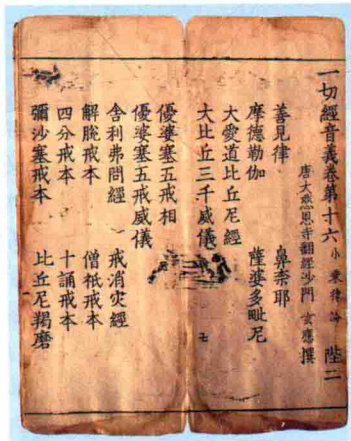 一切經音義卷第十六 小乘律論 陛二
唐大慈恩寺翻經沙門 玄應 撰
善見律 鼻柰耶
摩德勒伽 薩婆多毗尼
大愛道比丘尼經
大比丘三千威儀
優婆塞五戒相
優婆塞五戒威儀
舍利弗問經 戒消灾經
解脫戒本 僧祇戒本
四分戒本 十誦戒本
彌沙塞戒本 比丘尼羯磨